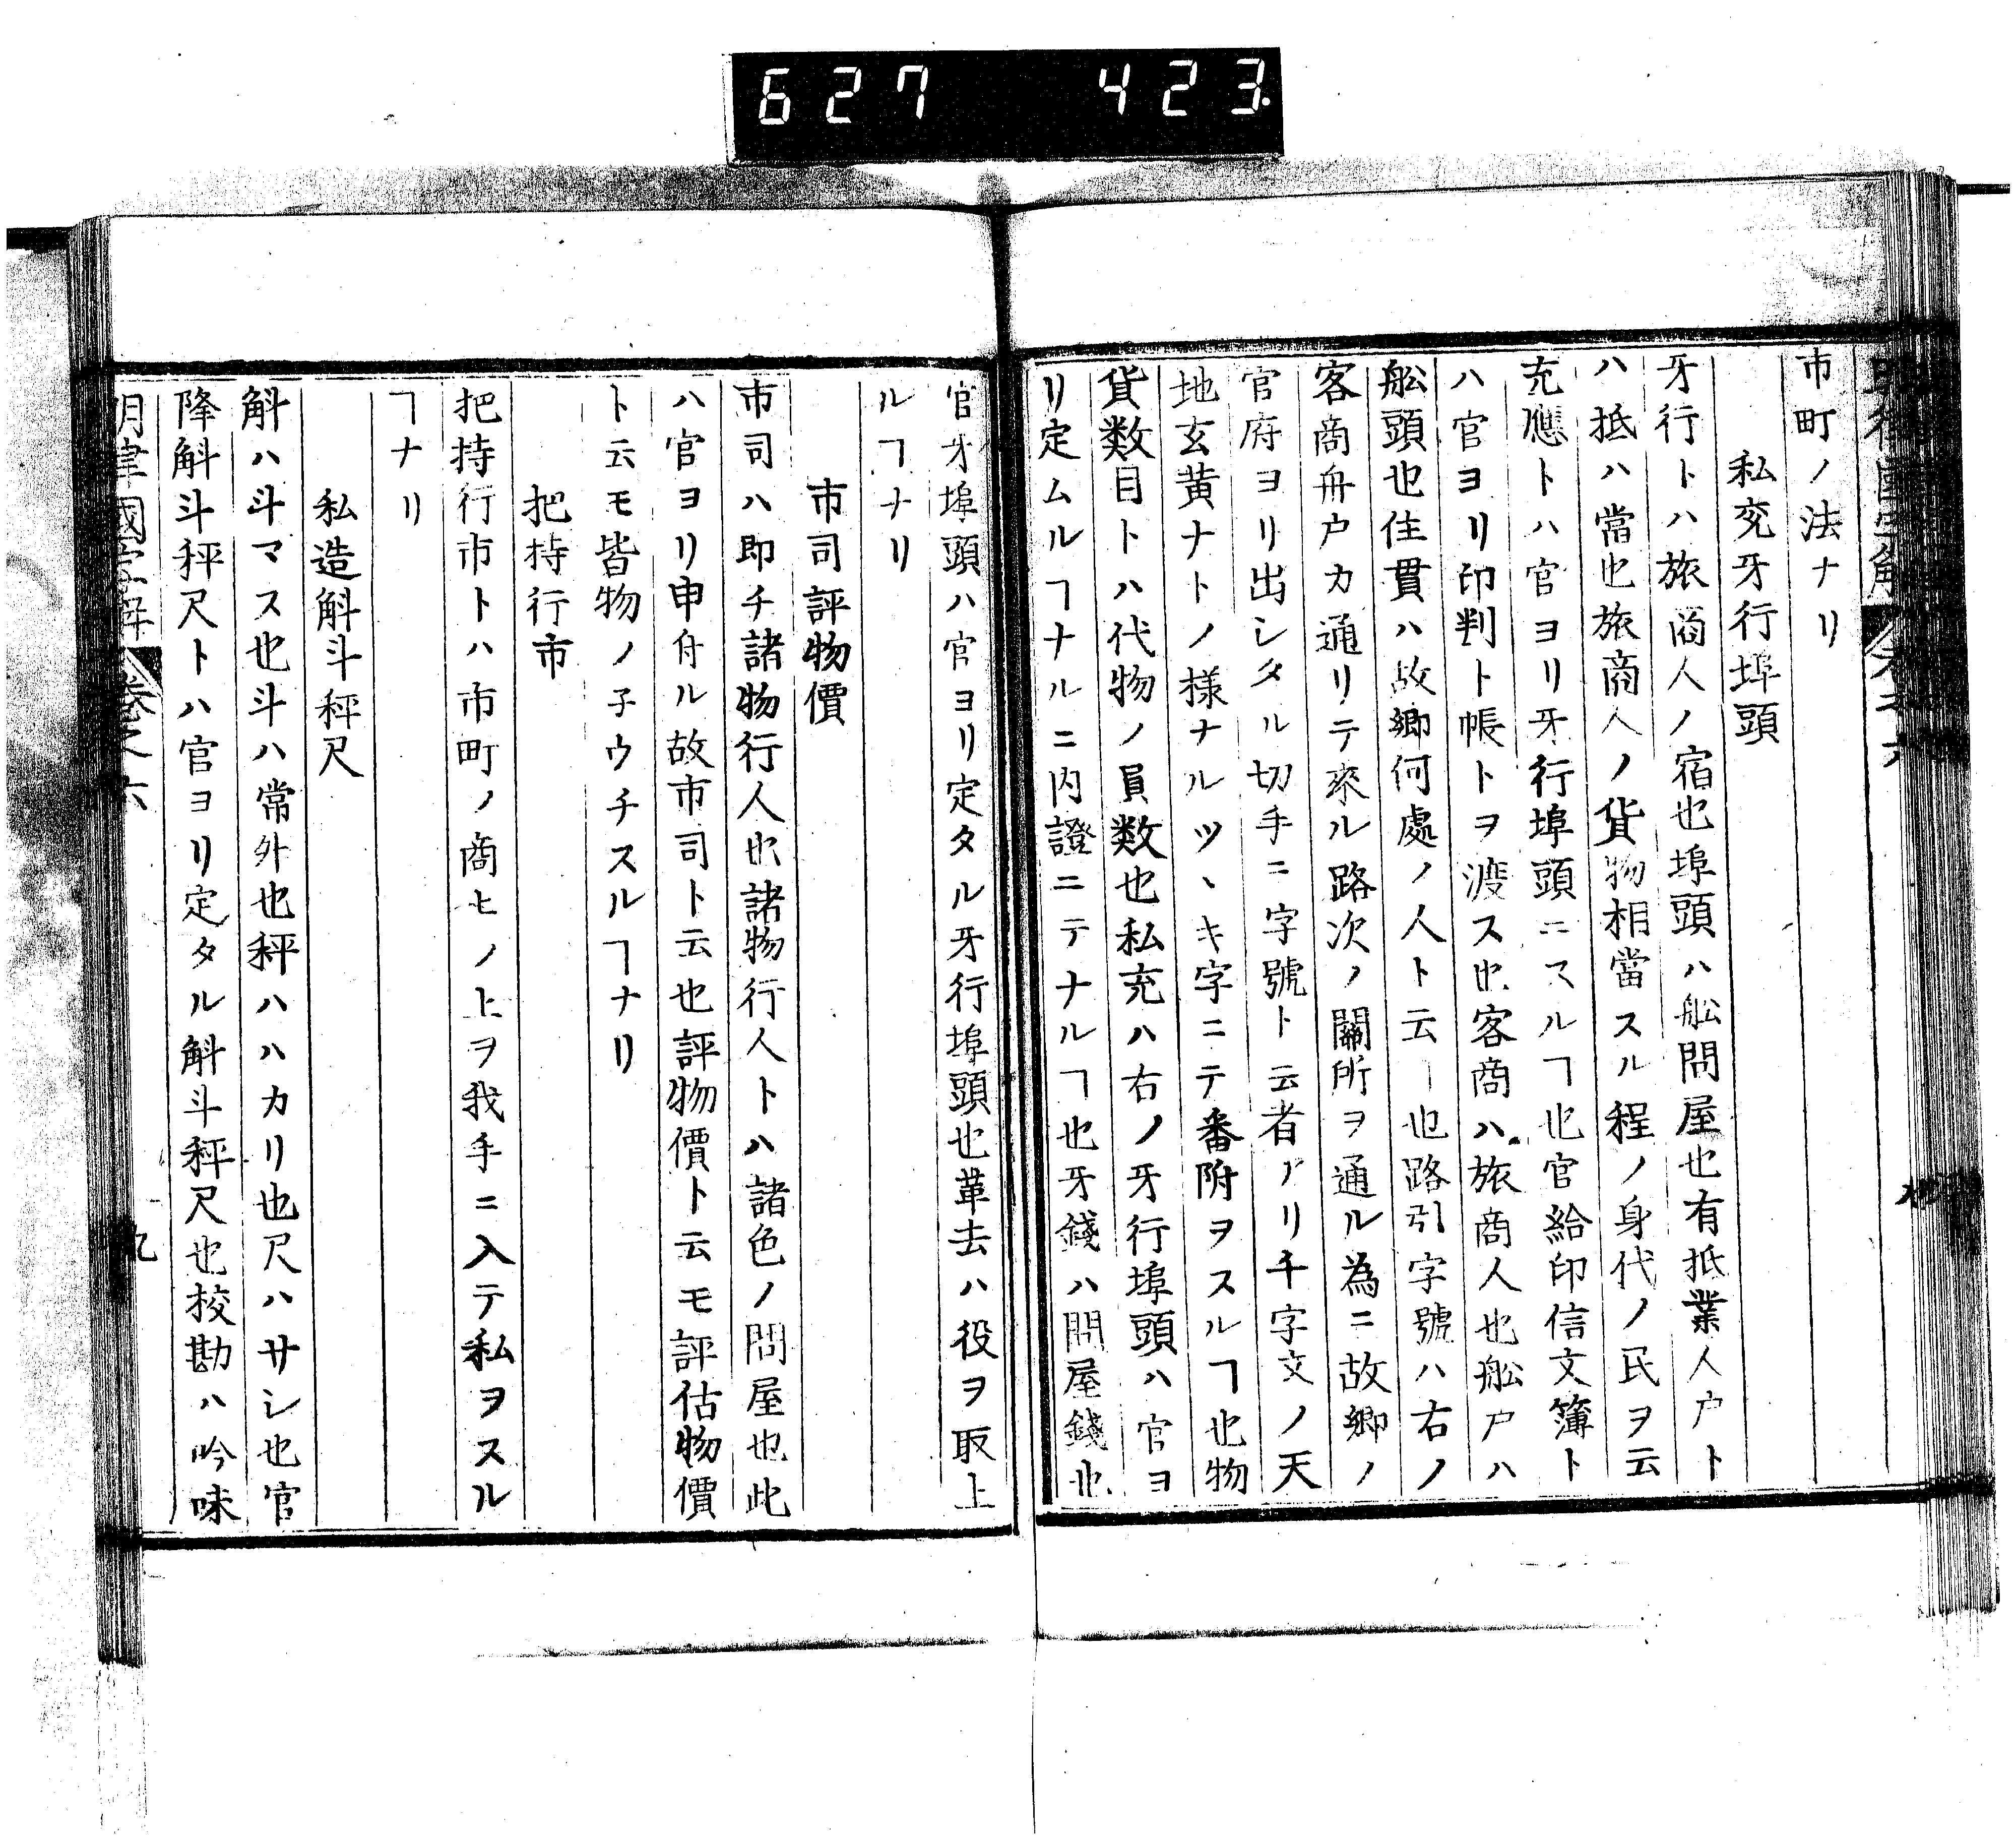 627 423
市町ノ法ナリ
私充牙行埠頭
牙行トハ旅商人ノ宿也埠頭ハ舩問屋也有抵業人戸ト
ハ抵ハ當也旅商人ノ貨物相當スル程ノ身代ノ民ヲ云
充應トハ官ヨリ牙行埠頭ニスルヿ也官給印信文簿ト
ハ官ヨリ印判ト帳トヲ渡ス也客商ハ旅商人也舩戸ハ
舩頭也住貫ハ故郷何處ノ人ト云ー也路引字號ハ右ノ
客商舟戸カ通リテ來ル路次ノ關所ヲ通ル為ニ故郷ノ
官府ヨリ出シタル切手ニ字號ト云者アリ千字文ノ天
地玄黄ナトノ様ナルツヽキ字ニテ番附ヲスルヿ也物
貨数目トハ代物ノ員数也私充ハ右ノ牙行埠頭ハ官ヨ
リ定ムルヿナルニ内證ニテナルヿ也牙錢ハ問屋錢也
官牙埠頭ハ官ヨリ定タル牙行埠頭也革去ハ役ヲ取上
ルヿナリ
市司評物價
市司ハ即チ諸物行人也諸物行人トハ諸色ノ問屋也此
ハ官ヨリ申舟ル故市司ト云也評物價ト云モ評估物價
ト云モ皆物ノ子ウチスルヿナリ
把持行市
把持行市トハ市町ノ商ヒノ上ヲ我手ニ入テ私ヲスル
ヿナリ
私造斛斗秤尺
斛ハ斗マス也斗ハ常外也秤ハハカリ也尺ハサシ也官
降斛斗秤尺トハ官ヨリ定タル斛斗秤尺也校勘ハ吟味
明律國字解 卷之六
九